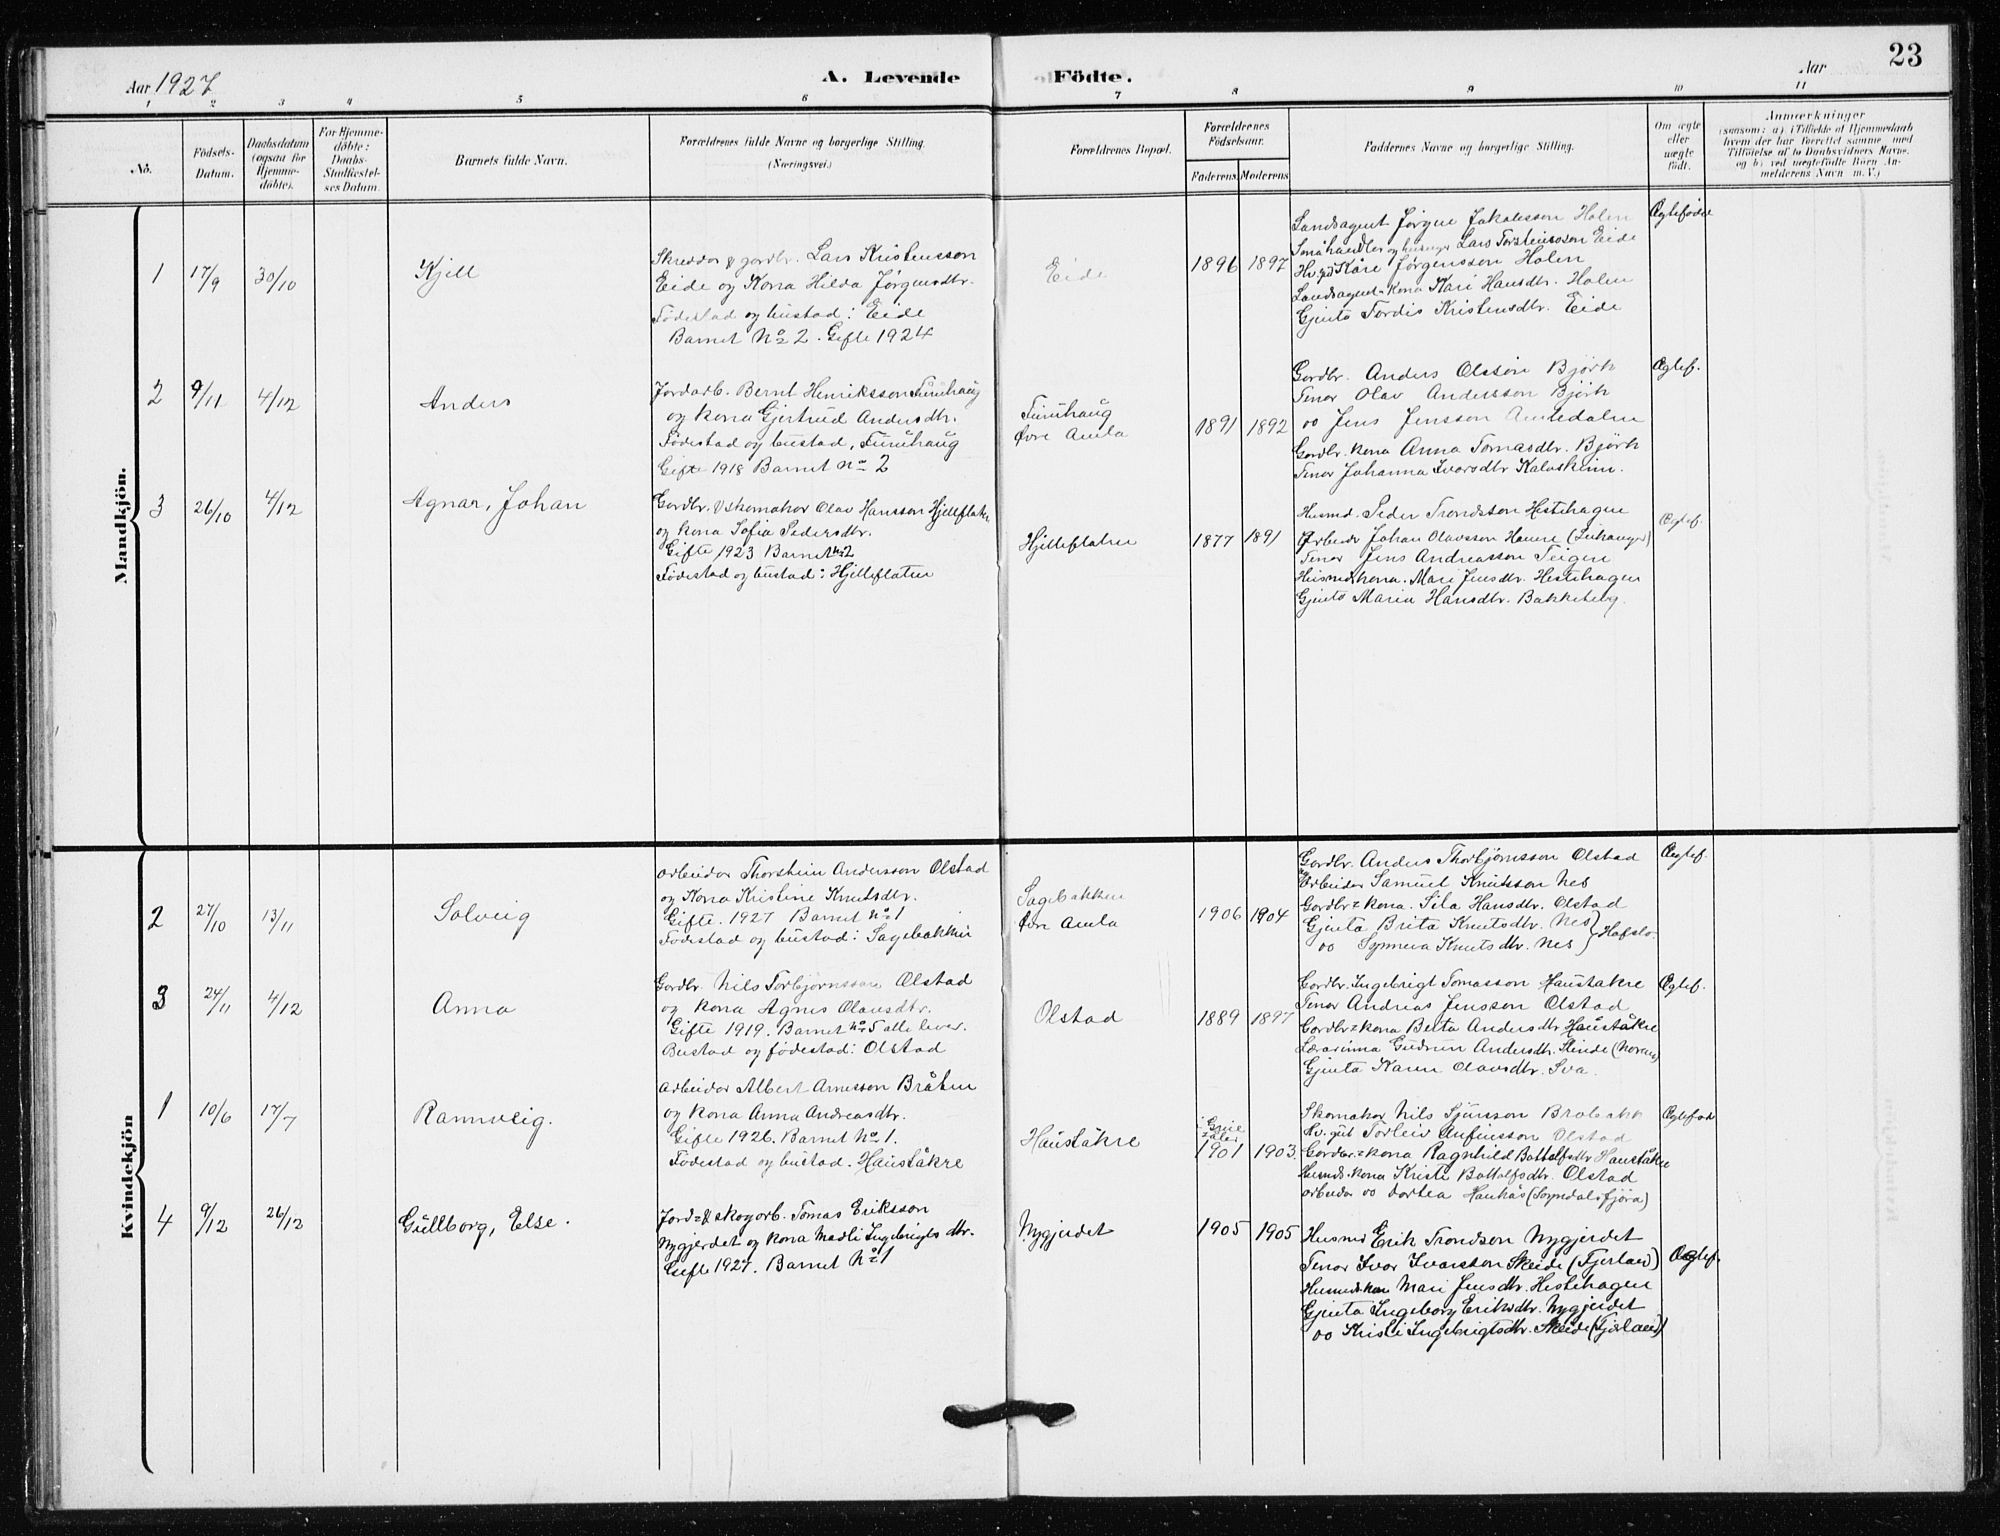 23
Aar 1927
A. Levende Födte.
Aar
1 2 3 4 5 6 7 8 9 10 11
No.
Födsels-Datum.
Daabsdatum (ogsaa for Hjemmedöbte).
For Hjemmedöbte: Daabs-Stadfæstelses Datum.
Barnets fulde Navn.
Forældrenes fulde Navne og borgerlige Stilling. (Næringsvei.)
Forældrenes Bopæl.
Forældrenes Födselsaar.
Faderens. Moderens.
Faddernes Navne og borgerlige Stilling.
Om ægte eller uægte födt.
Anmærkninger
(saasom: a). i Tilfælde af Hjemmedaab
hvem der har forrettet samme, med
Tilföielse af to Daabsvidners Navne,
og b) ved uægtefödte Börn An-
melderens Navn m. V.)
Mandkjön.
1 17/9 30/10 Kjell
Skreddar & gardbr. Lars Kristensson
Eide og Kona Hilda Jørgensdtr.
Fødestad og bustad: Eide
Barnet No 2. Gifte 1924
Eide
1896 1897
Landsagent Jørgen Jakobsson Holen
Småhandler og husmgr Lars Torsteinsson Eide
Hv.gd Kåre Jørgensson Holen
Landsagent-kona Kari Hansdtr. Holen
Gjenta Tordis Kristensdtr. Eide
Ægtefödde
2 9/11 4/12 Anders
Jordarb. Bernt Henriksson Furuhaug
og kona Gjertrud Andersdtr.
Fødestad og bustad, Furuhaug
Gifte 1918 Barnet No 2
Furuhaug
Øvre Amla
1891 1892
Gordbr. Anders Olsson Björk
Tenar Olav Andersson Björk
oo Jens Jensson Amledalen
Gordbr. kona Anna Tomasdtr. Björk
Tenar Johanna Ivarsdtr Kalvskinn.
Ægtef.
3 26/10 4/12 Agnar, Johan
Gordbr. & skomakar Olav Hansson Hjelleflaten
og kona Sofia Pedersdtr.
Gifte 1923 Barnet No 2
Fødestad og bustad: Hjelleflaten
Hjelleflaten
1877 1891
Husmd. Peder Trondsson Hestehagen
Arbeidr Johan Olavsson Henere (Leikanger)
Tenar Jens Andreasson Teigen
Husmdkona. Mari Jensdtr. Hestehagen
Gjenta Maria Hansdtr. Bakketeig.
Ægtef.
Kvindekjön
2 27/10 13/11 Solveig
Arbeidar Thorstein Andersson Olstad
og Kona Kristine Knutsdtr.
Gifte. 1927 Barnet No 1
Fødestad og bustad: Sagebakken
Sagebakken
Øvre Amla
1906 1904
Gordbr. Anders Thorbjørnsson Olstad
Arbeidar Samuel Knutsson Nes
Gordbr- kona. Sila Hansdtr. Olstad
Gjenta Brita Knutsdtr. Nes
oo Synneva Knutsdtr. Nes } Hafslo.
Ægtef.
3 24/11 4/12 Anna
Gordbr. Nils Torbjørnsson Olstad
og kona Agnes Olavsdtr.
Gifte 1919. Barnet No 5 alle lever.
Bustad og fødestad: Olstad
Olstad
1889 1897
Gordbr. Ingebrigt Tomasson Haustakre
Tenar Andreas Jensson Olstad
Gordbr- kona Berta Andersdtr Hauståkre
Lærarinna Gudrun Andersdtr. Slinde (Norum)
Gjenta Karen Olavsdtr. Sva.
Ægtef.
1 10/6 17/7 Rannveig.
Arbeidar Albert Arnesson Bråten
og kona Anna Andreasdtr.
Gifte 1926. Barnet No 1.
Fødestad og bustad. Hauståkre
Hauståkre
1901 1903
Skomakar Nils Sjursson
Hv. gut Torleiv Anfinsson Olstad
Gordbr- kona Ragnhild Bottolfsdtr Hauståkre
Husmds-kona Kristi Bottolfsdtr. Olstad
Arbeidar oo Dortea Haukås (Sogndalsfjøra)
Ægtefød
4 9/12 26/12 Gullborg, Else.
Jord- & skogarb. Tomas Eriksson
Nygjerdet og kona Madli Ingebrigts dtr.
Gifte 1927. Barnet No 1
Nygjerdet
1905 1905
Husmd Erik Trondson Nygjerdet
Tenar Ivar Ivarsson Skeide (Fjerland)
Husmdskona Mari Jensdtr. Hestehagen
Gjenta Ingeborg Eriksdtr. Nygjerdet
oo Kristi Ingebrigtsdtr. Skeide (Fjærland)
Ægtef.